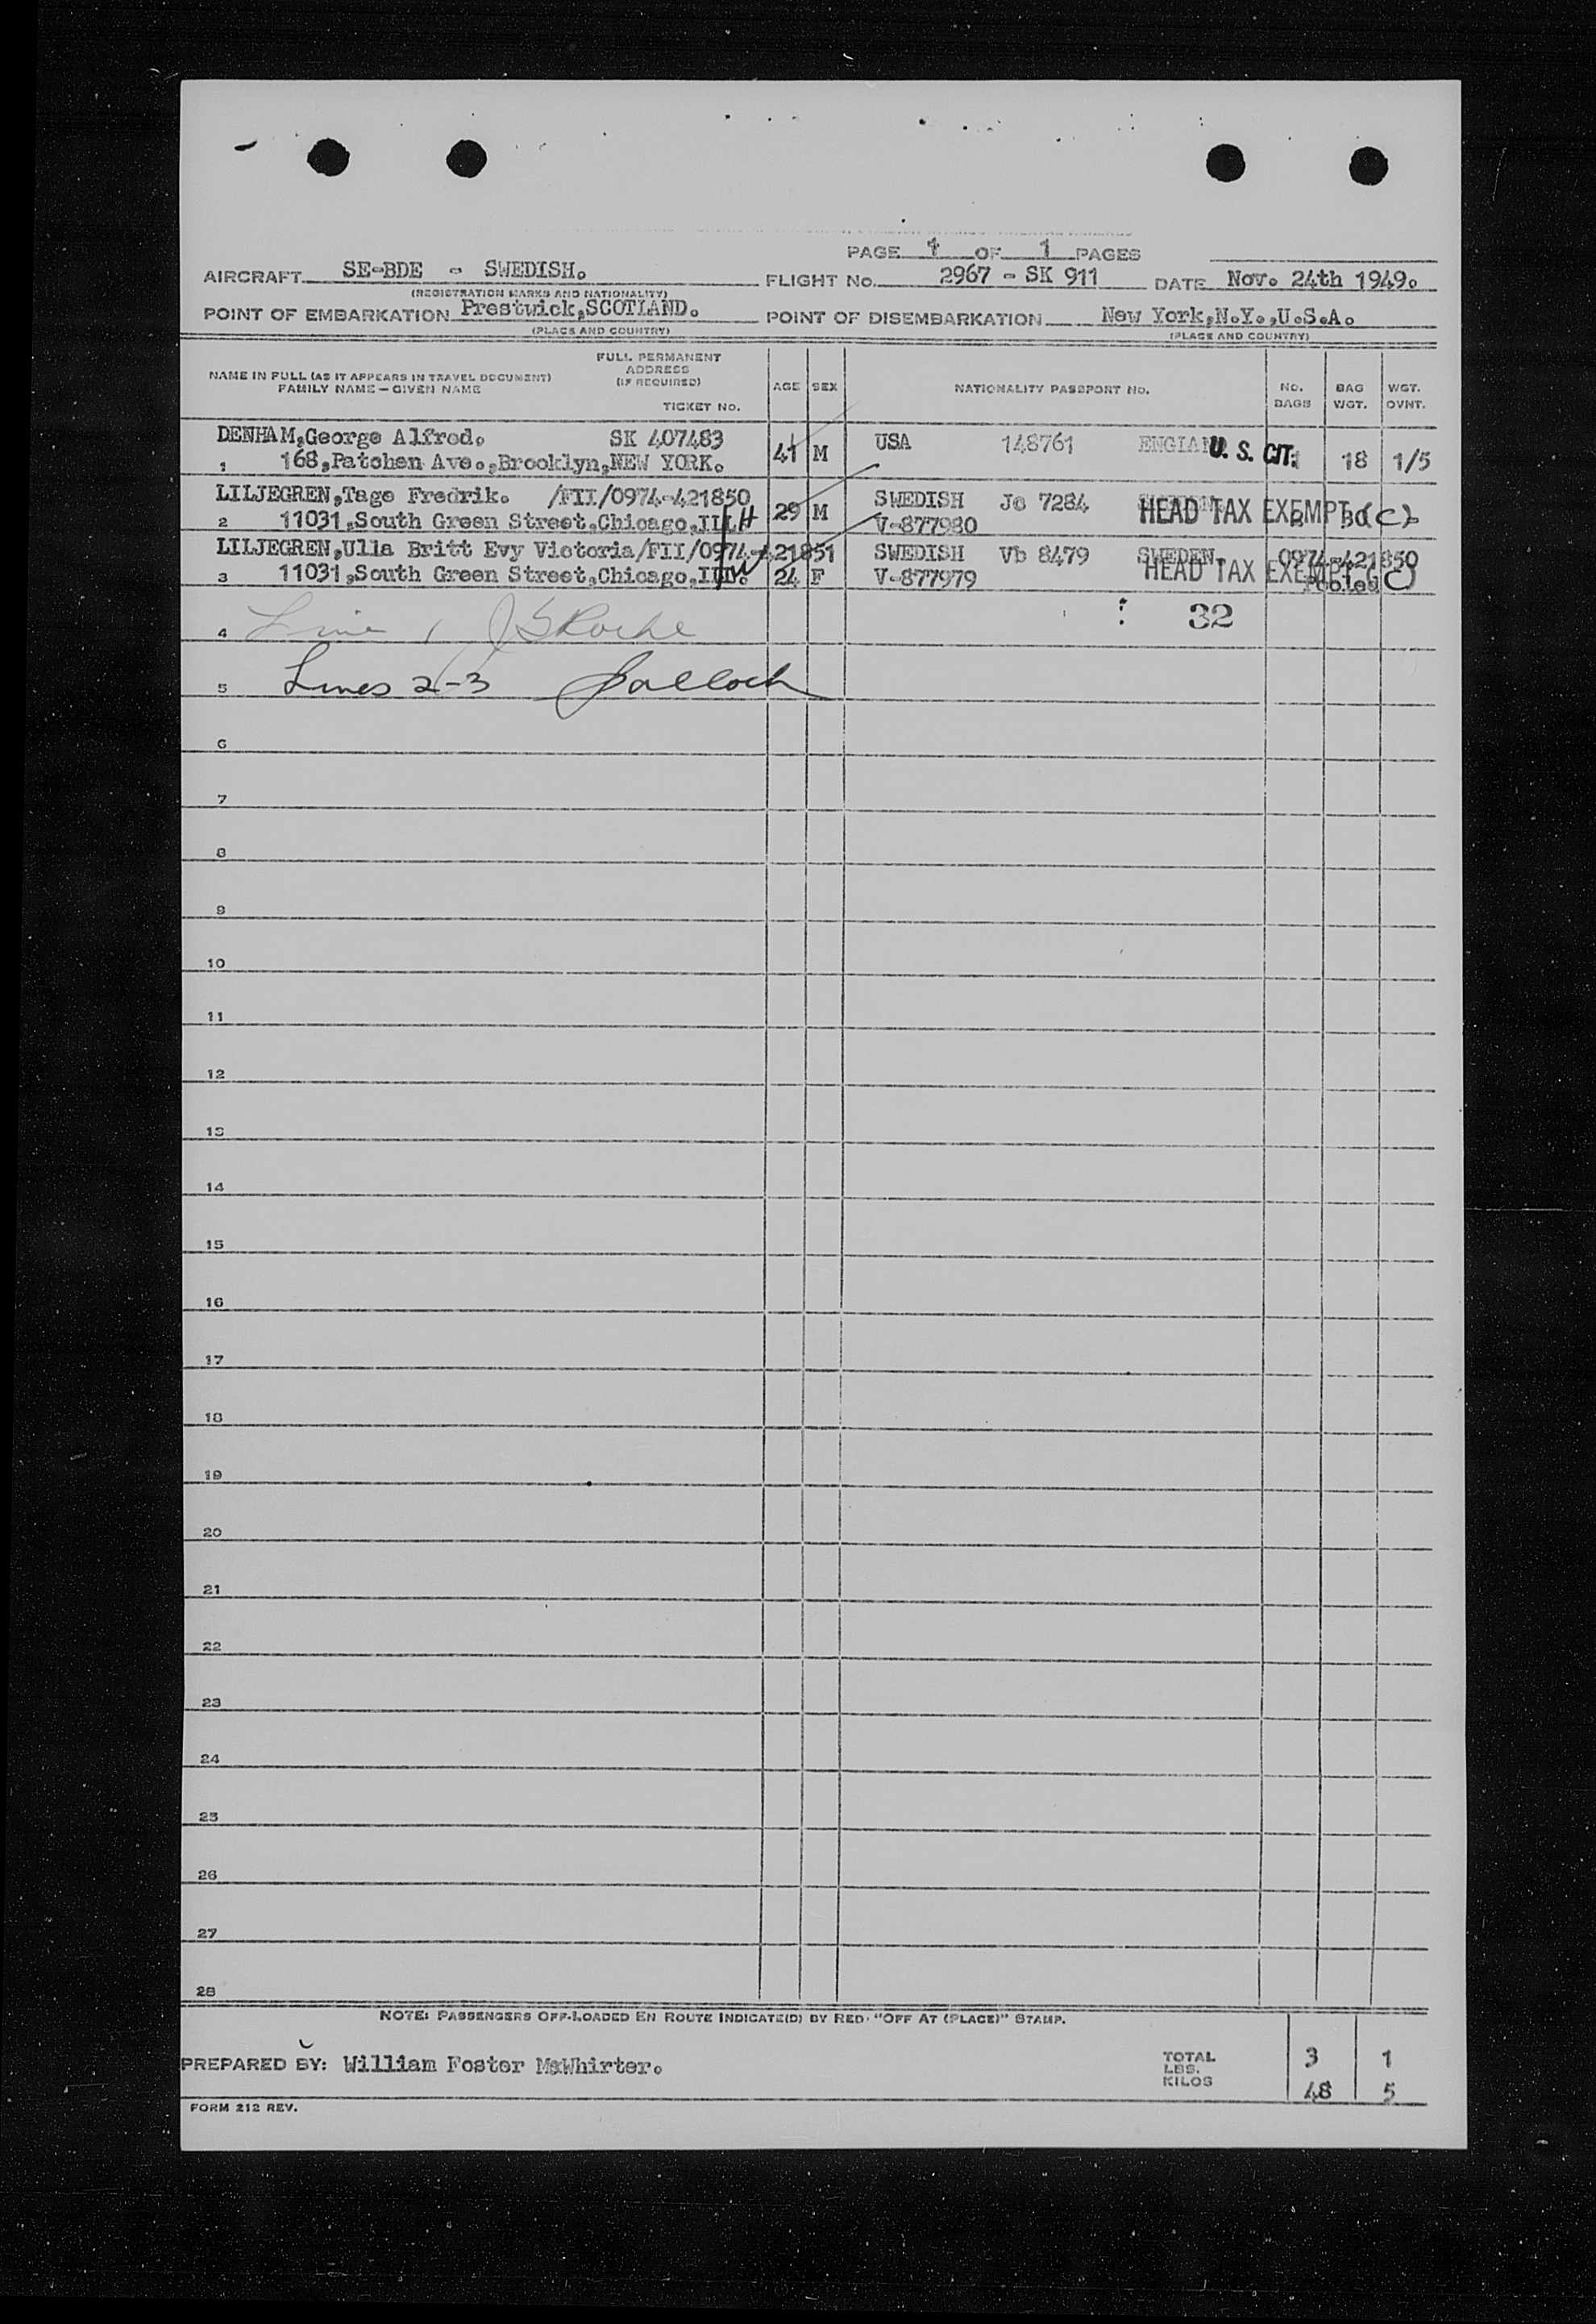 PAGE 1 OF 1 PAGES
AIRCRAFT SE-BDE - SWEDISH. FLIGHT No. 2967 - SK 911 DATE Nov. 24th 1949.
(REGISTRATION MARKS AND NATIONALITY)
POINT OF EMBARKATION Prestwick,SCOTLAND. POINT OF DISEMBARKATION New York,N.Y.,U.S.A.
(PLACE AND COUNTRY) (PLACE AND COUNTRY)
NAME IN FULL (AS IT APPEARS IN TRAVEL DOCUMENT)
FAMILY NAME — GIVEN NAME
FULL PERMANENT
ADDRESS
(IF REQUIRED)
TICKET NO.
AGE SEX NATIONALITY PASSPORT NO. NO. BAGS BAG WGT. WGT. OVNT.
DENHAM,George Alfred. SK 407483
1 168,Patchen Ave.,Brooklyn,NEW YORK. 41 M USA 148761 ENGLAND U. S. CIT. 18 1/5
LILJEGREN,Tage Fredrik. /FII/0974-421850
2 11031,South Green Street,Chicago,ILL. 29 M SWEDISH Jc 7284 HEAD TAX EXEMPT (C)
V-877980
LILJEGREN,Ulla Britt Evy Victoria/FII/0974-421851 SWEDISH Vb 8479 SWEDEN. 0974-421850
3 11031,South Green Street,Chicago,ILL. 24 F V-877979 HEAD TAX EXEMPT (C) Pooled
4 Line 1 JSRoche 32
5 Lines 2-3
6
7
8
9
10
11
12
13
14
15
16
17
18
19
20
21
22
23
24
25
26
27
28
NOTE: PASSENGERS OFF-LOADED EN ROUTE INDICATE(D) BY RED "OFF AT (PLACE)" STAMP.
PREPARED BY: William Foster McWhirter.
TOTAL 3 1
LBS.
KILOS 48 5
FORM 212 REV.